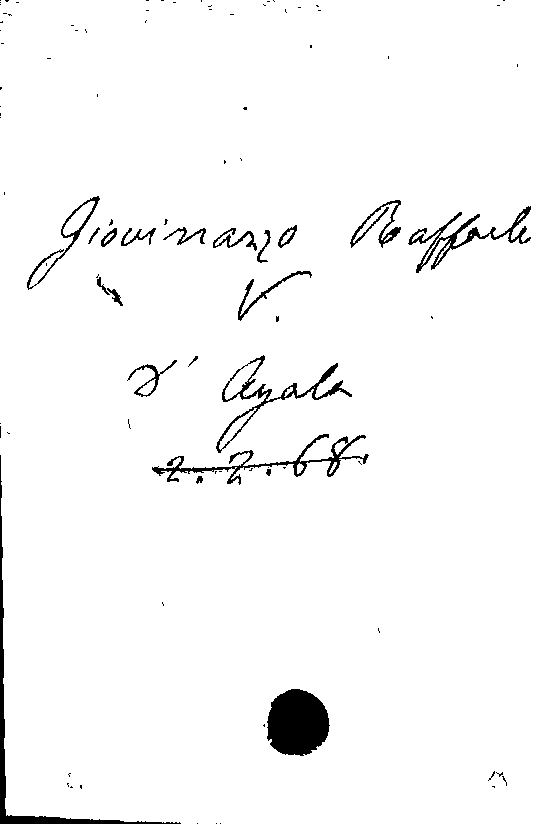 Giovinazzo Raffaele
V.
D' Ayala
2.2.68.